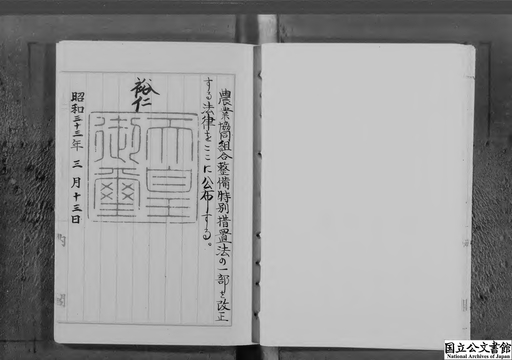 農業協同組合整備特別措置法の一部を改正
する法律をここに公布する。
裕仁
天皇
御璽
昭和三十三年三月十三日
国立公文書館
National Archives of Japan